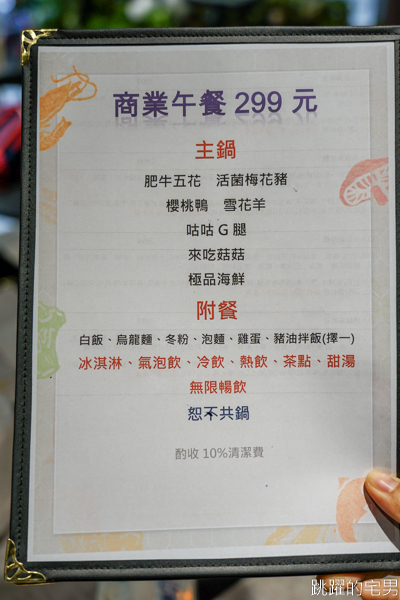 商業午餐 299 元
主鍋
肥牛五花 活菌梅花豬
櫻桃鴨 雪花羊
咕咕 G 腿
來吃菇菇
極品海鮮
附餐
白飯、烏龍麵、冬粉、泡麵、雞蛋、豬油拌飯(擇一)
冰淇淋、氣泡飲、冷飲、熱飲、茶點、甜湯
無限暢飲
恕不共鍋
酌收 10%清潔費
跳躍的宅男